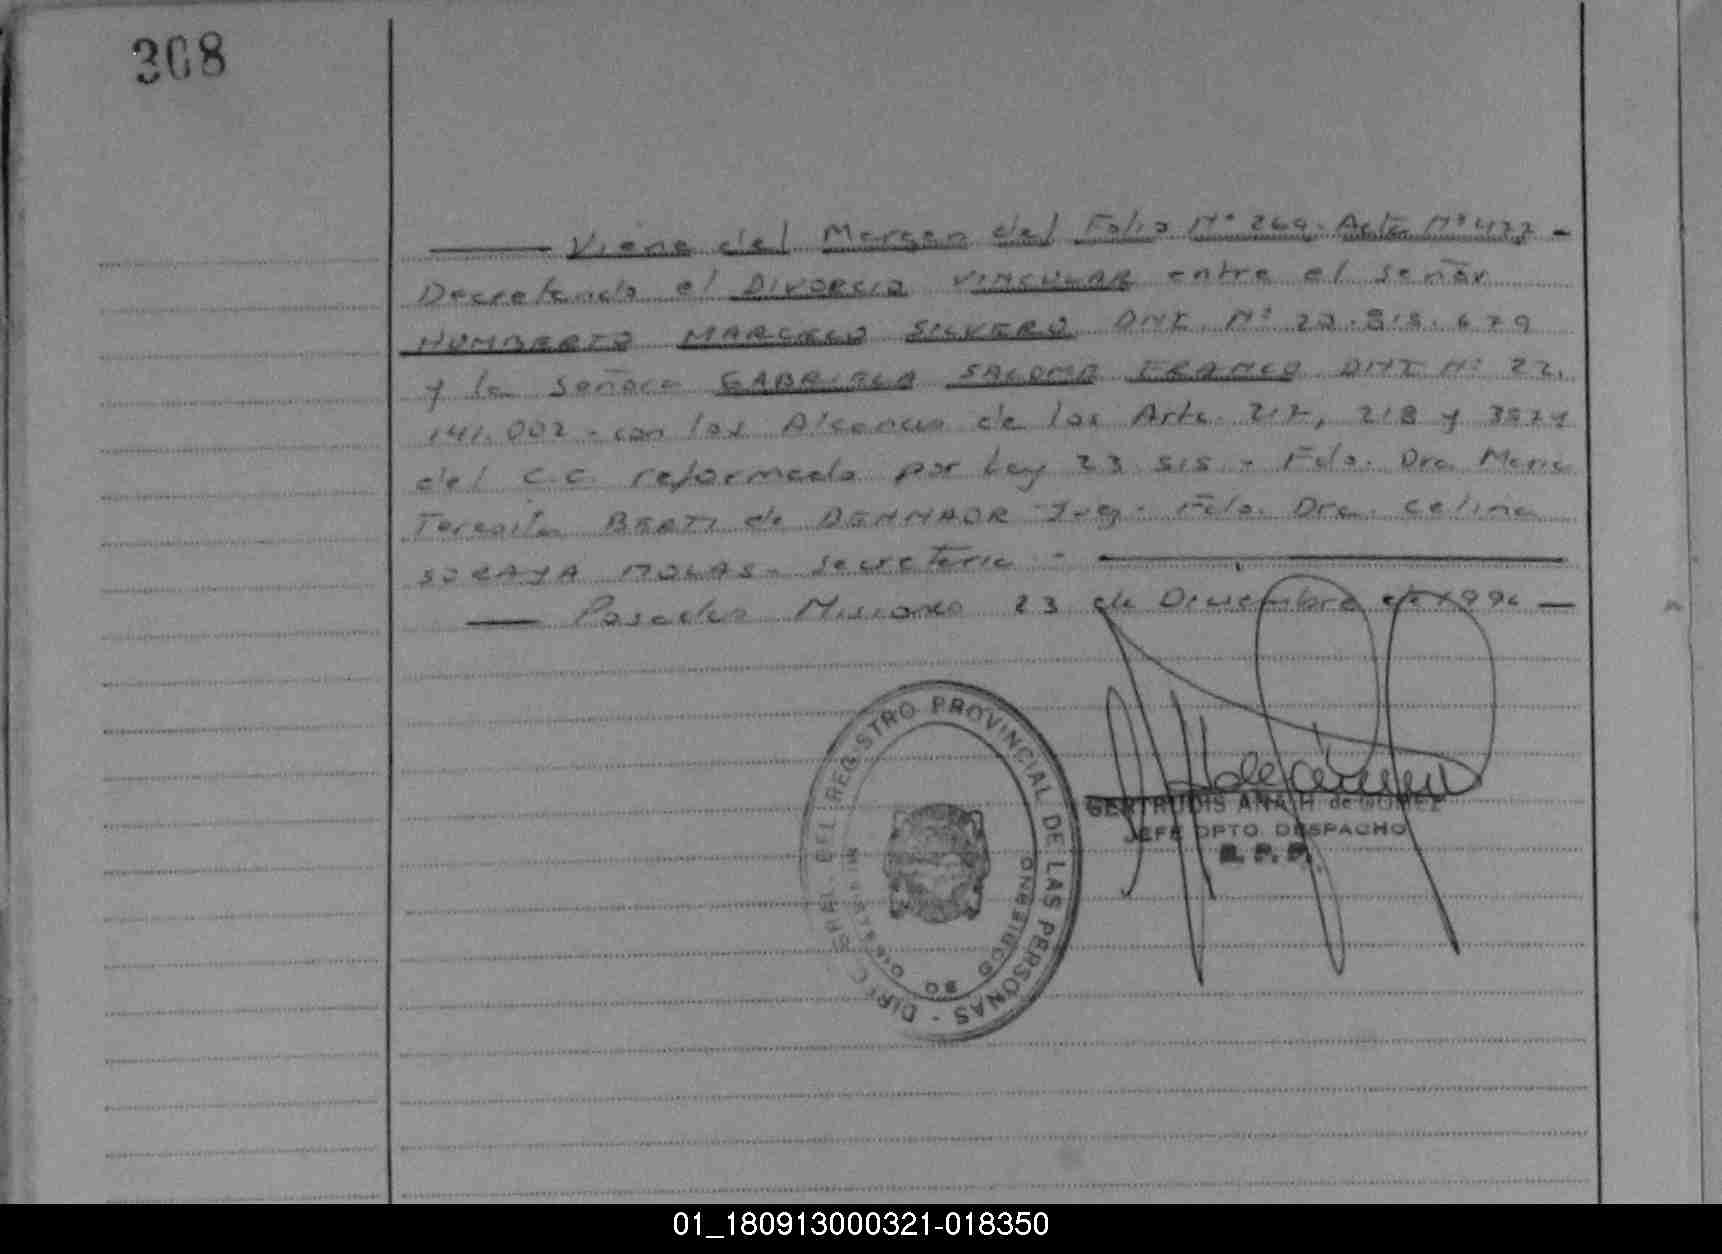 308
Viene del Margen del Folio Nº 269. Acta Nº 477 -
Decretando el DIVORCIO VINCULAR entre el señor
HUMBERTO MARCELO SILVERO DNI. Nº 679
y la señora GABRIELA SALOME FRANCO DNI Nº 22.
141.002 - con los Alcances de los Arts. 217, 218 y
del C.C. reformado por Ley 23 515 - Fdo. Dra. Maria
Teresita BERTI de DENMAOR Juez - Fdo. Dra. Celina
SORAYA MOLAS - Secretaria -
Posadas Misiones 23 de Diciembre de 1996
DIREC GRAL. DEL REGISTRO PROVINCIAL DE LAS PERSONAS
CODIGO
GERTRUDIS ANA H. de GOMEZ
JEFE DPTO. DESPACHO
R. P. P.
01_180913000321-018350